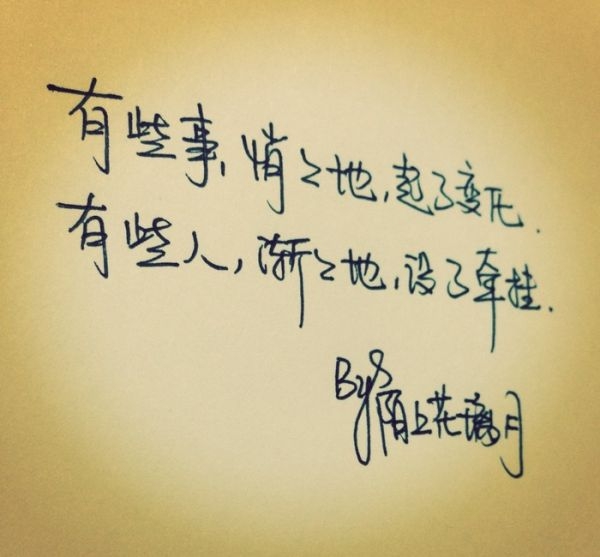 有些事,悄々地,起了变化.
有些人,渐々地,没了牵挂.
By 陌上花月